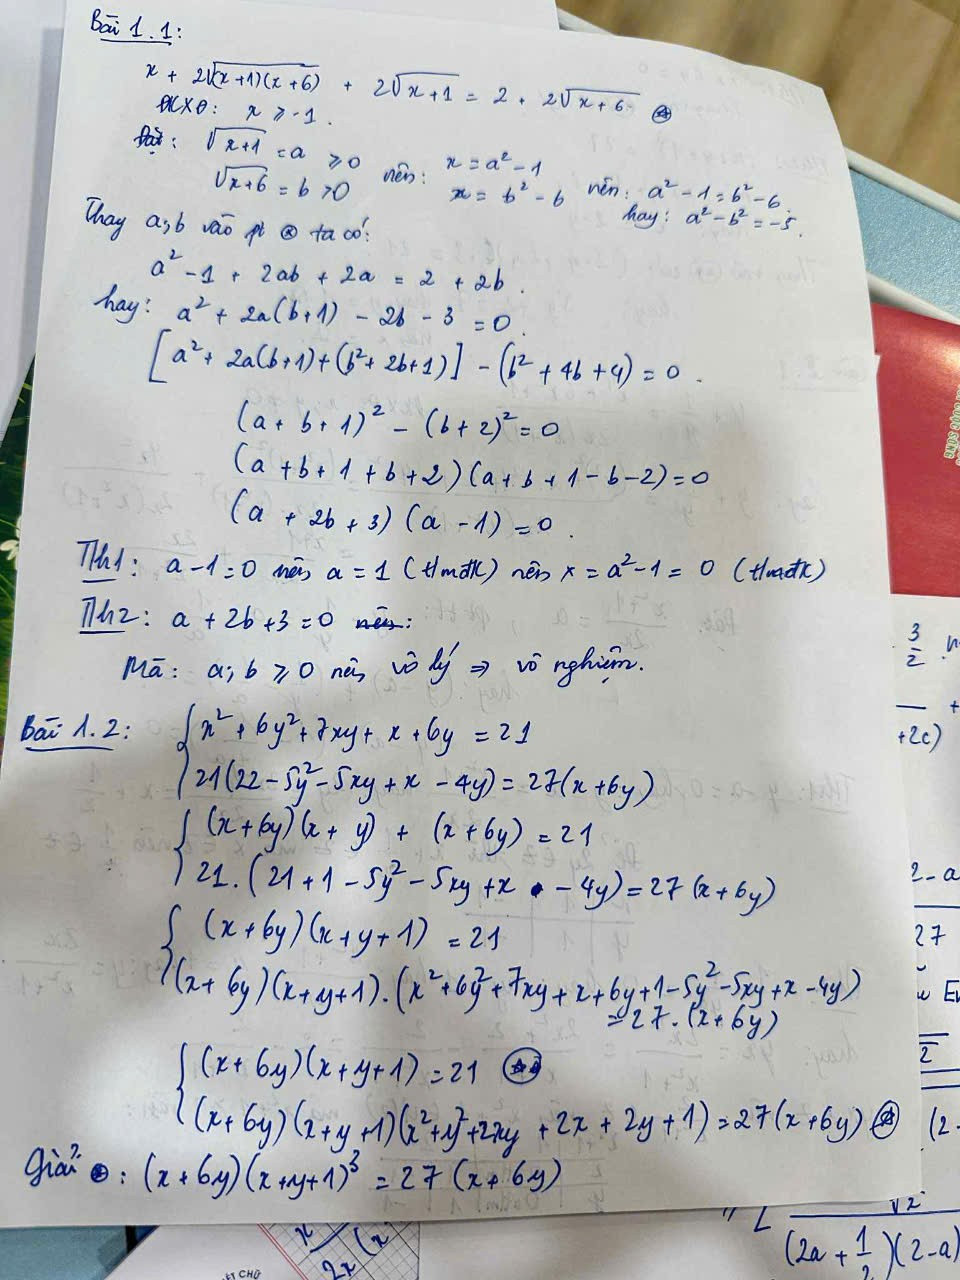 Bài 1.1:
x + 2√(x+1)(x+6) + 2√x+1 = 2 + 2√x+6 ⊛
ĐKXĐ: x ⩾ -1.
Đặt: √x+1 = a ⩾ 0 nên: x = a² - 1
√x+6 = b > 0 x = b² - 6 nên: a² - 1 = b² - 6.
hay: a² - b² = -5.
Thay a;b vào pt ⊛ ta có:
a² - 1 + 2ab + 2a = 2 + 2b.
hay: a² + 2a(b+1) - 2b - 3 = 0.
[a² + 2a(b+1) + (b² + 2b+1)] - (b² + 4b + 4) = 0.
(a + b + 1)² - (b + 2)² = 0
(a + b + 1 + b + 2)(a + b + 1 - b - 2) = 0
(a + 2b + 3)(a - 1) = 0.
Th1: a - 1 = 0 nên a = 1 (tmđk) nên x = a² - 1 = 0 (tmđk)
Th2: a + 2b + 3 = 0 nên:
Mà: a; b ⩾ 0 nên vô lý ⇒ vô nghiệm.
Bài 1.2: { x² + 6y² + 7xy + x + 6y = 21
21(22 - 5y² - 5xy + x - 4y) = 27(x + 6y)
{ (x + 6y)(x + y) + (x + 6y) = 21
21.(21 + 1 - 5y² - 5xy + x - 4y) = 27(x + 6y)
{ (x + 6y)(x + y + 1) = 21
(x + 6y)(x + y + 1).(x² + 6y² + 7xy + x + 6y + 1 - 5y² - 5xy + x - 4y)
= 27.(x + 6y)
{ (x + 6y)(x + y + 1) = 21
(x + 6y)(x + y + 1)(x² + y² + 2xy + 2x + 2y + 1) = 27(x + 6y) ⊛
Giải ⊛: (x + 6y)(x + y + 1)³ = 27(x + 6y)
3/2
+2c)
2 - a
27
(2a + 1/2)(2 - a)
2x
ẾT CHỮ